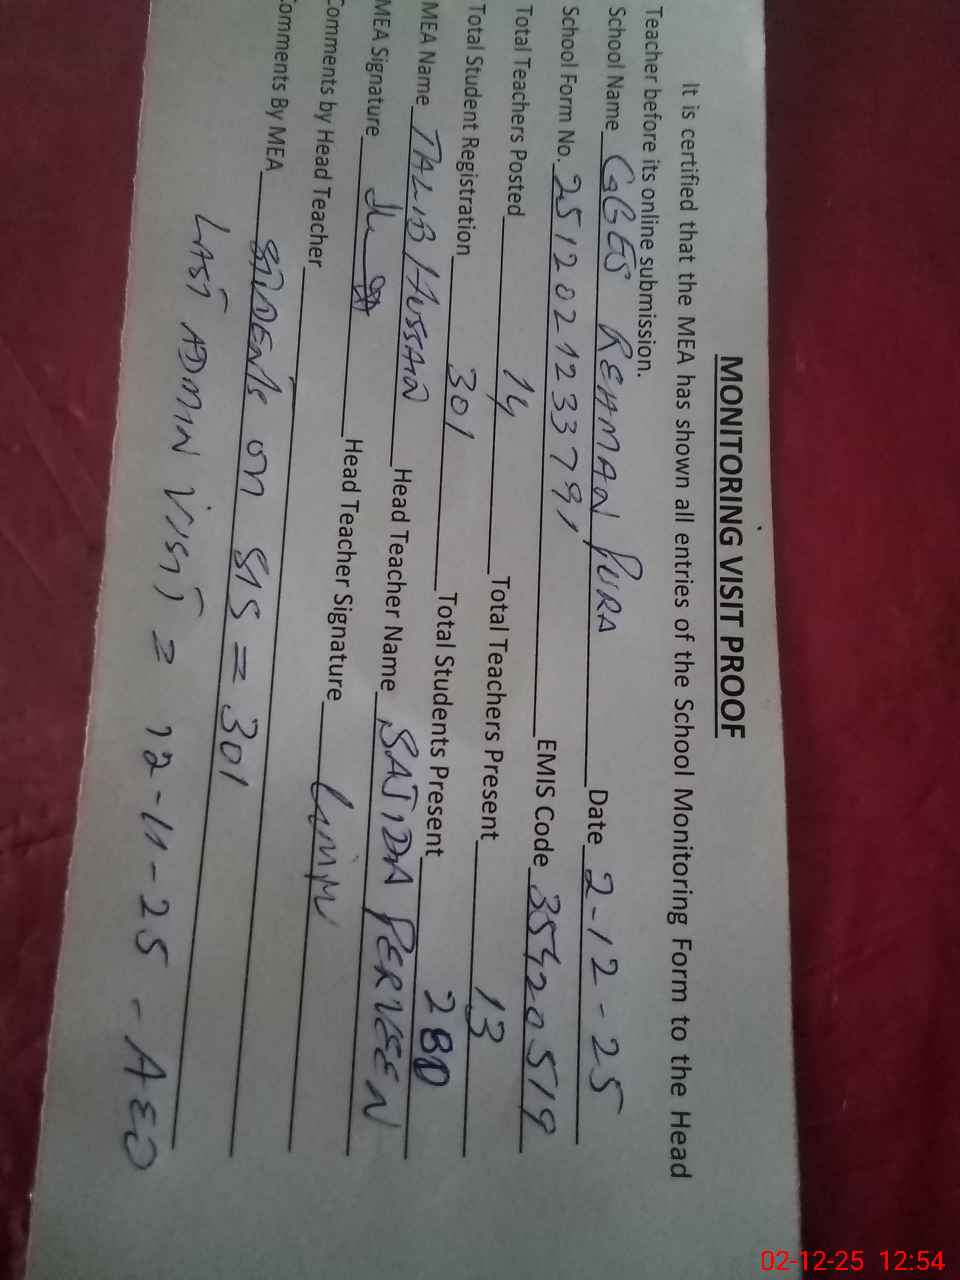 MONITORING VISIT PROOF
It is certified that the MEA has shown all entries of the School Monitoring Form to the Head
Teacher before its online submission.
School Name GGES REHMAN PURA Date 2-12-25
School Form No. 251202123379 EMIS Code 35420519
Total Teachers Posted 14 Total Teachers Present 13
Total Student Registration 301 Total Students Present 280
MEA Name TALIB HUSSAIN Head Teacher Name SAJIDA PERVEEN
MEA Signature Head Teacher Signature
Comments by Head Teacher
Comments By MEA STUDENTS ON SIS = 301
LAST ADMIN VISIT = 12-11-25 - AEO
02-12-25 12:54